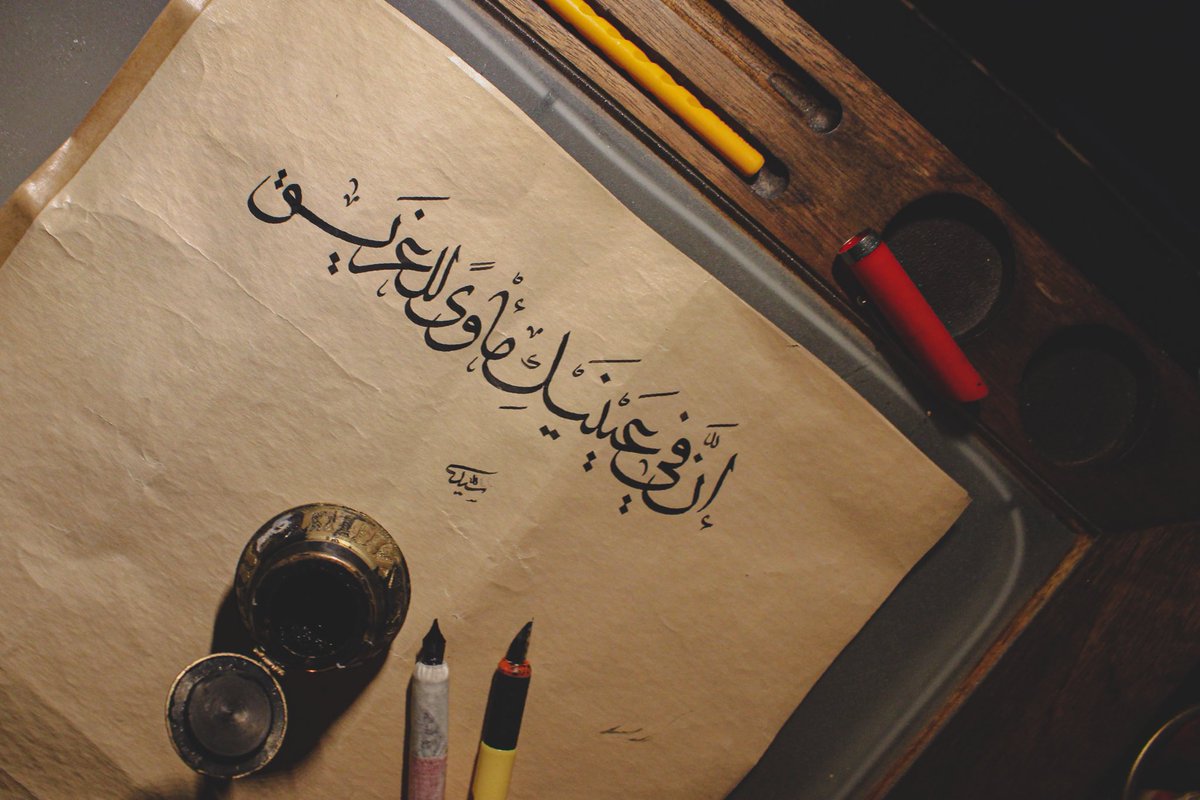 إنَّ في عَيْنَيْكِ مأْوىً للغَريق